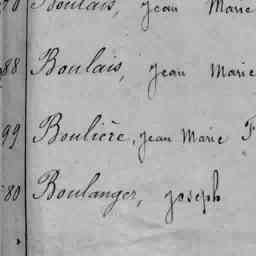 70 Boulais, Jean Marie
88 Boulais, Jean Marie
99 Boulière, Jean Marie F
80 Boulanger, Joseph